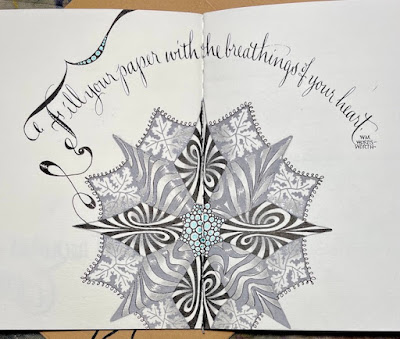 Fill your paper with the breathings of your heart.
WM
WORDS-
WORTH